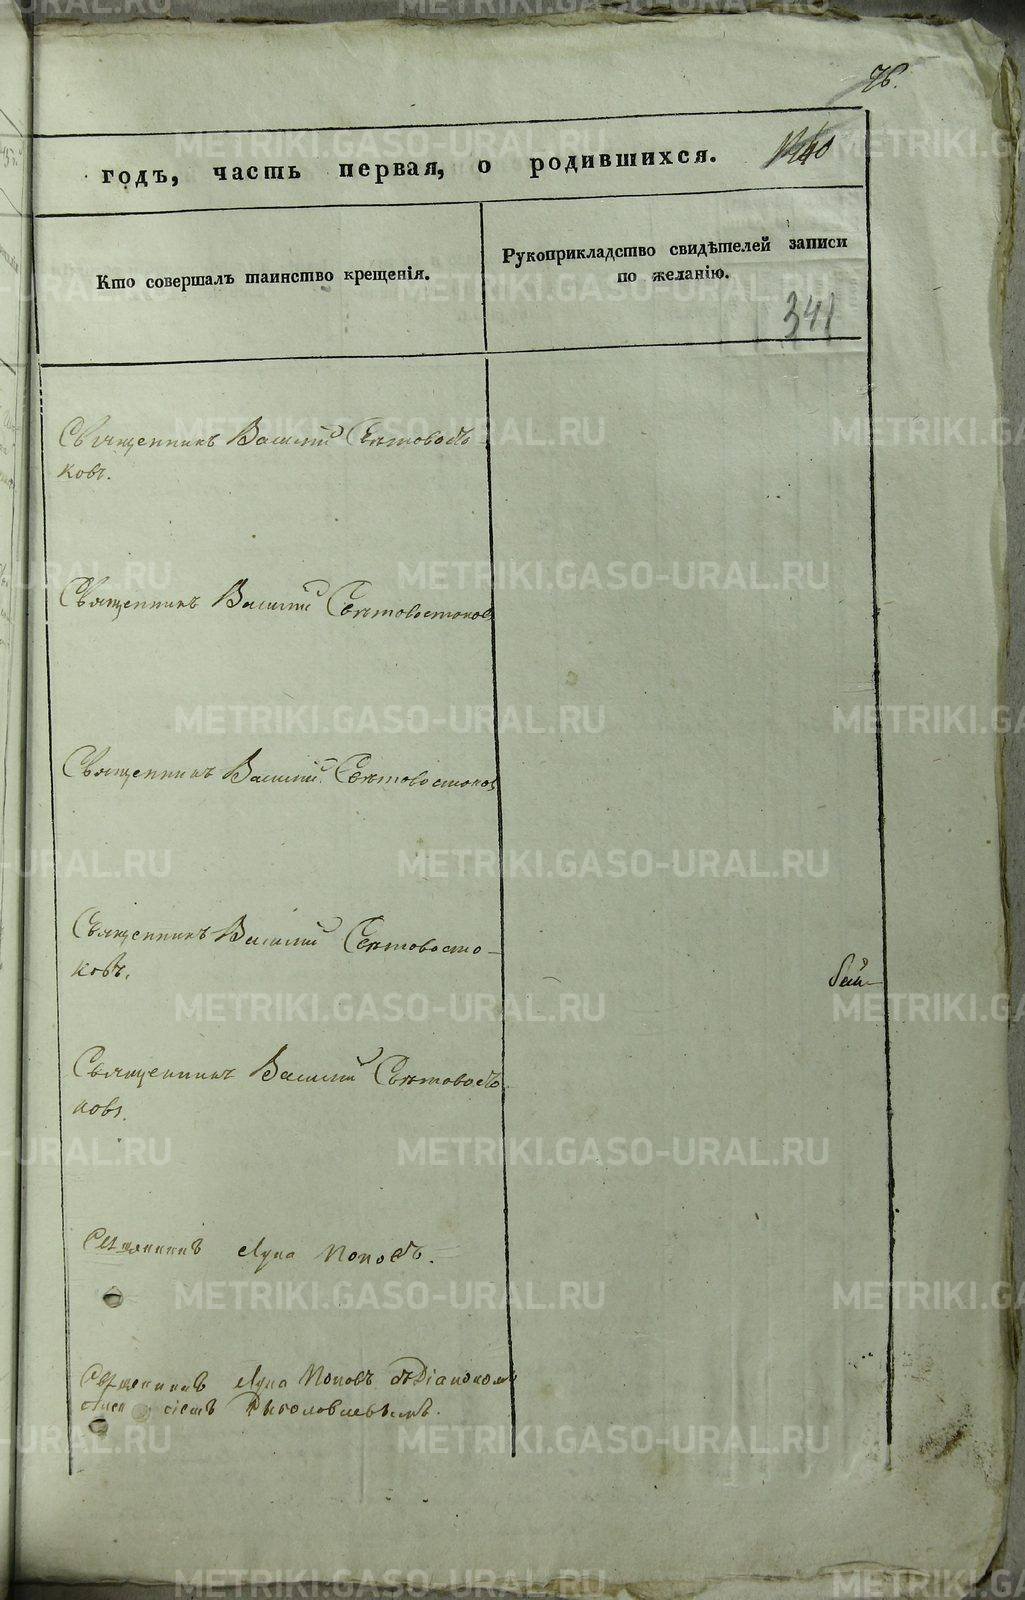 76.
годъ, часть первая, о родившихся. №40
Кто совершалъ таинство крещенія.
Рукоприкладство свидѣтелей записи
по желанію.
341
Священникъ Василій Свѣтовосто
ковъ.
Священникъ Василій Свѣтовостоковъ
Священникъ Василій Свѣтовостоковъ
Священникъ Василій Свѣтовосто-
ковъ.
Священникъ Василій Свѣтовосто
ковъ.
Священникъ Лука Поповъ.
Священникъ Лука Поповъ съ Діакономъ
METRIKI.GASO-URAL.RU